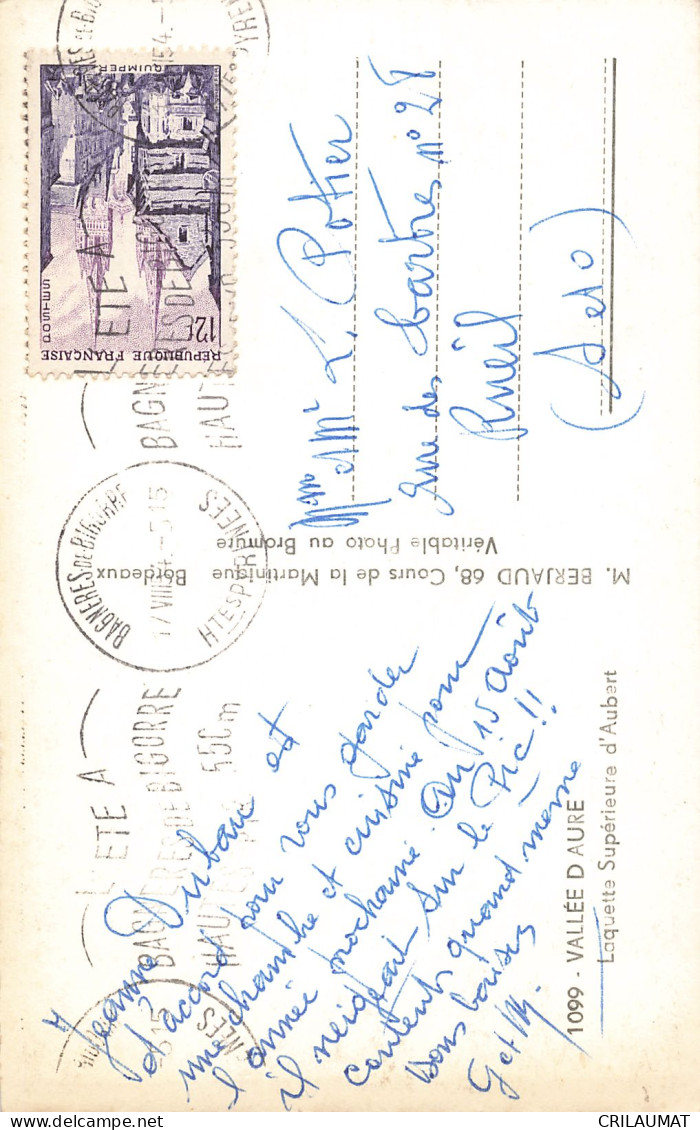 1099 - VALLÉE D'AURE
Laquette Supérieure d'Aubert
Jeanne Duban est
d'accord pour vous garder
une chambre et cuisine pour
l'année prochaine. Au 15 Août
il neigeait sur le Pic !!
Contents quand même
Bons baisers
G et M.
M. BERJAUD 68, Cours de la Martinique Bordeaux
Véritable Photo au Bromure
Mme et Mr L. Potier
rue des Martres n° 28
Rueil
(S et O)
QUIMPER
POSTES
12F
RÉPUBLIQUE FRANÇAISE
BAGNERES-DE-BIGORRE
17 VIII 54 - 5 15
HTES PYRENEES
L'ETE A
BAGNERES DE BIGORRE
HAUTES
550m
CRILAUMAT